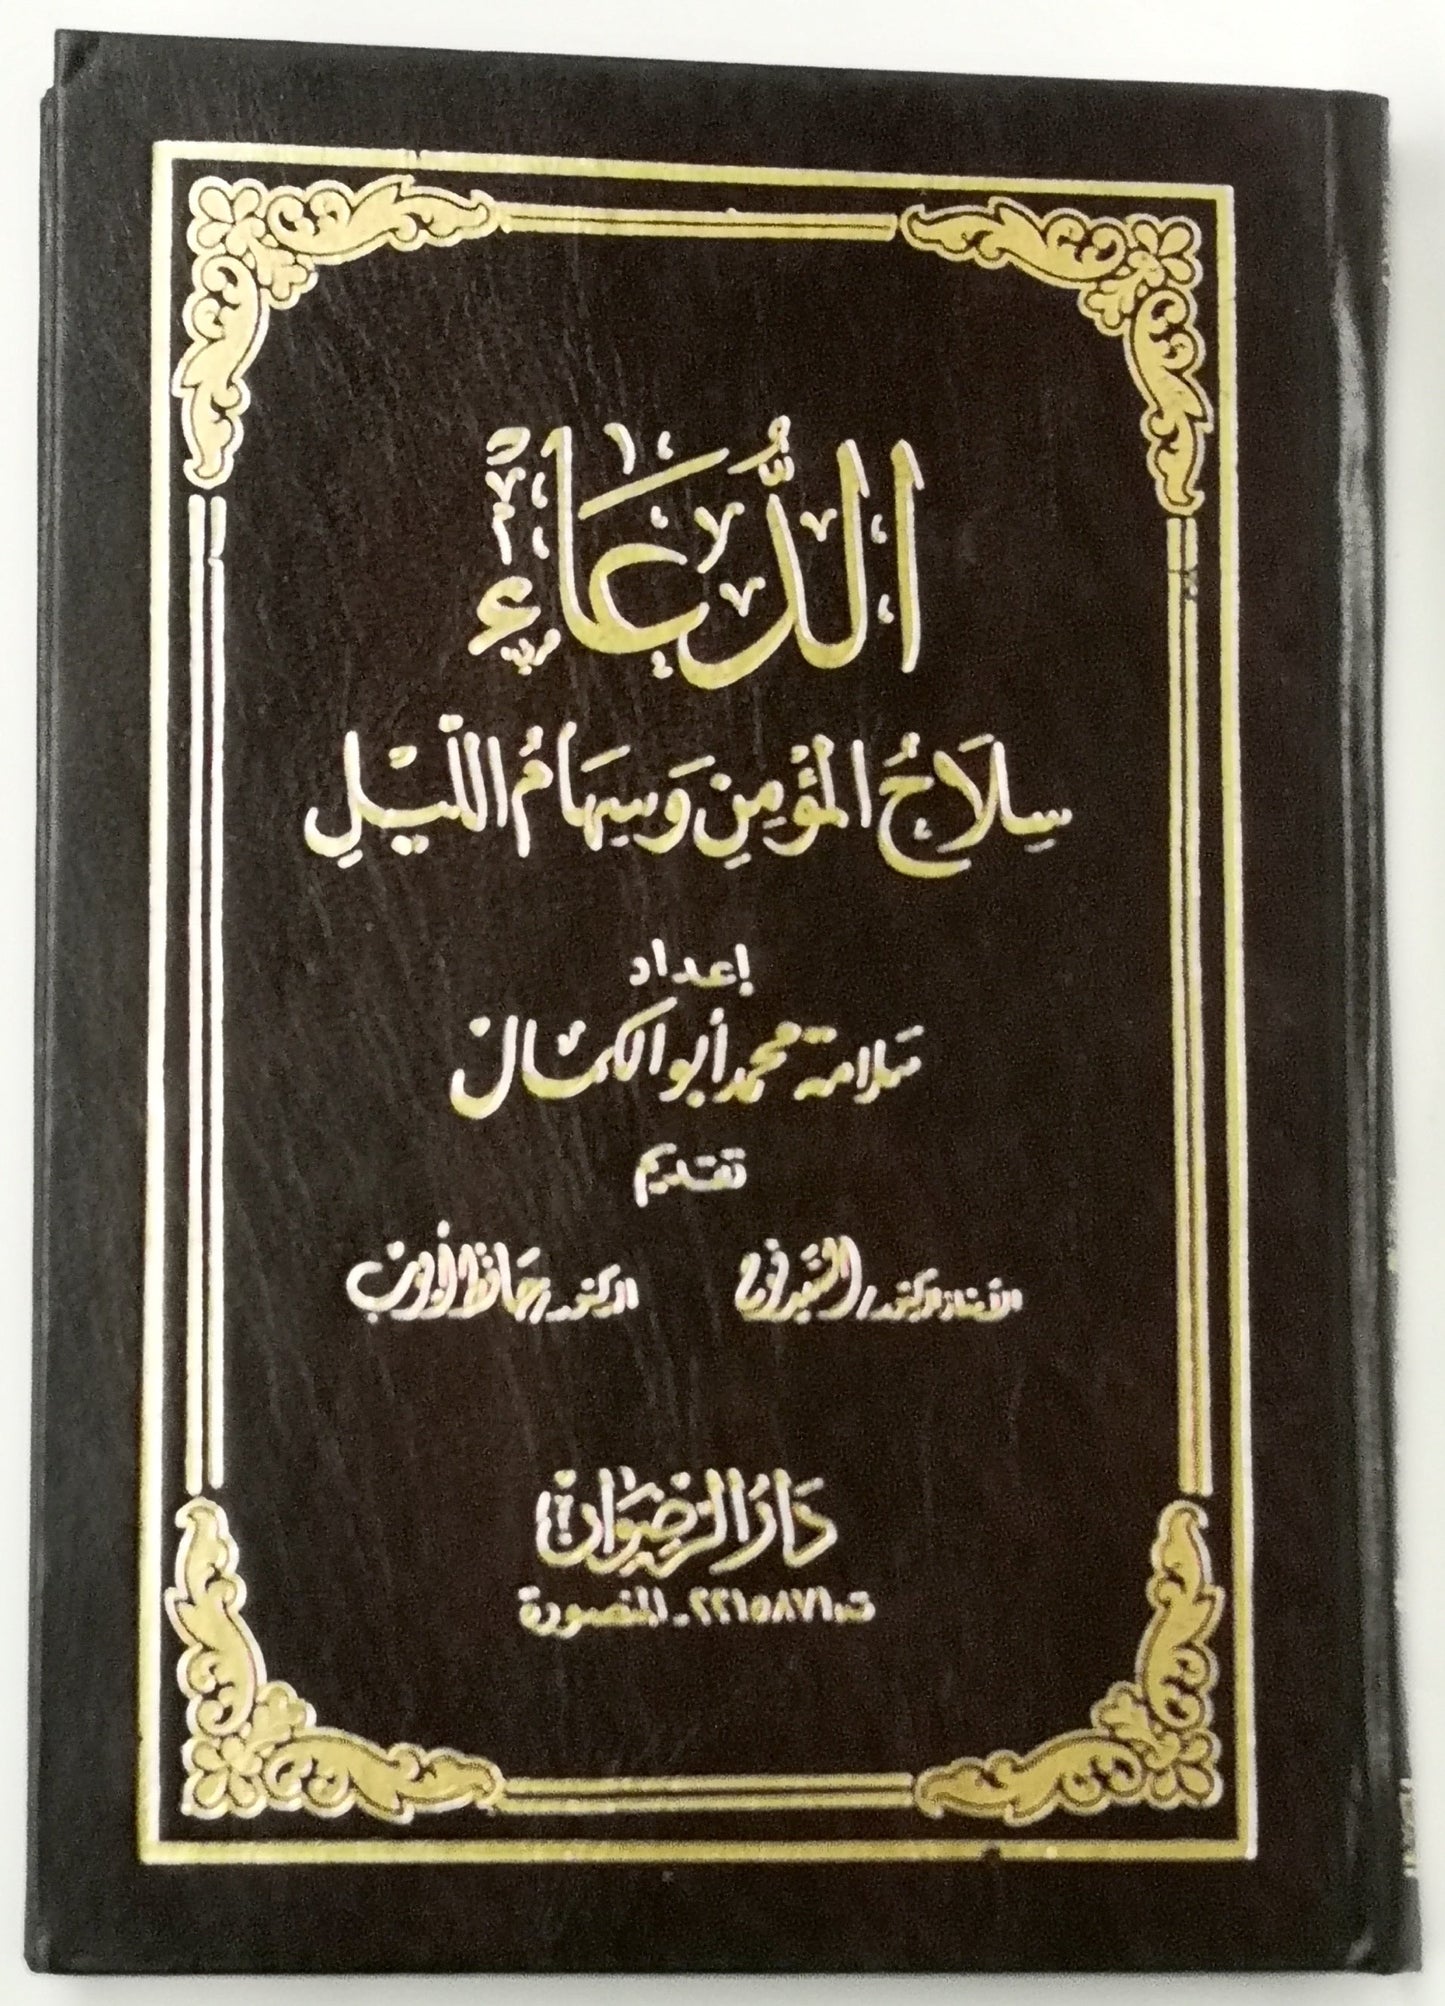 الدُّعَاءُ
سِلَاحُ المُؤْمِنِ وَسِهَامُ اللَّيْلِ
إعداد
سلامة محمد أبو الكمال
تقديم
الأستاذ الدكتور /
الدكتور /
دَارُ الرِّضوَان
ت: ٢٢١٥٨٧١ - المنصورة